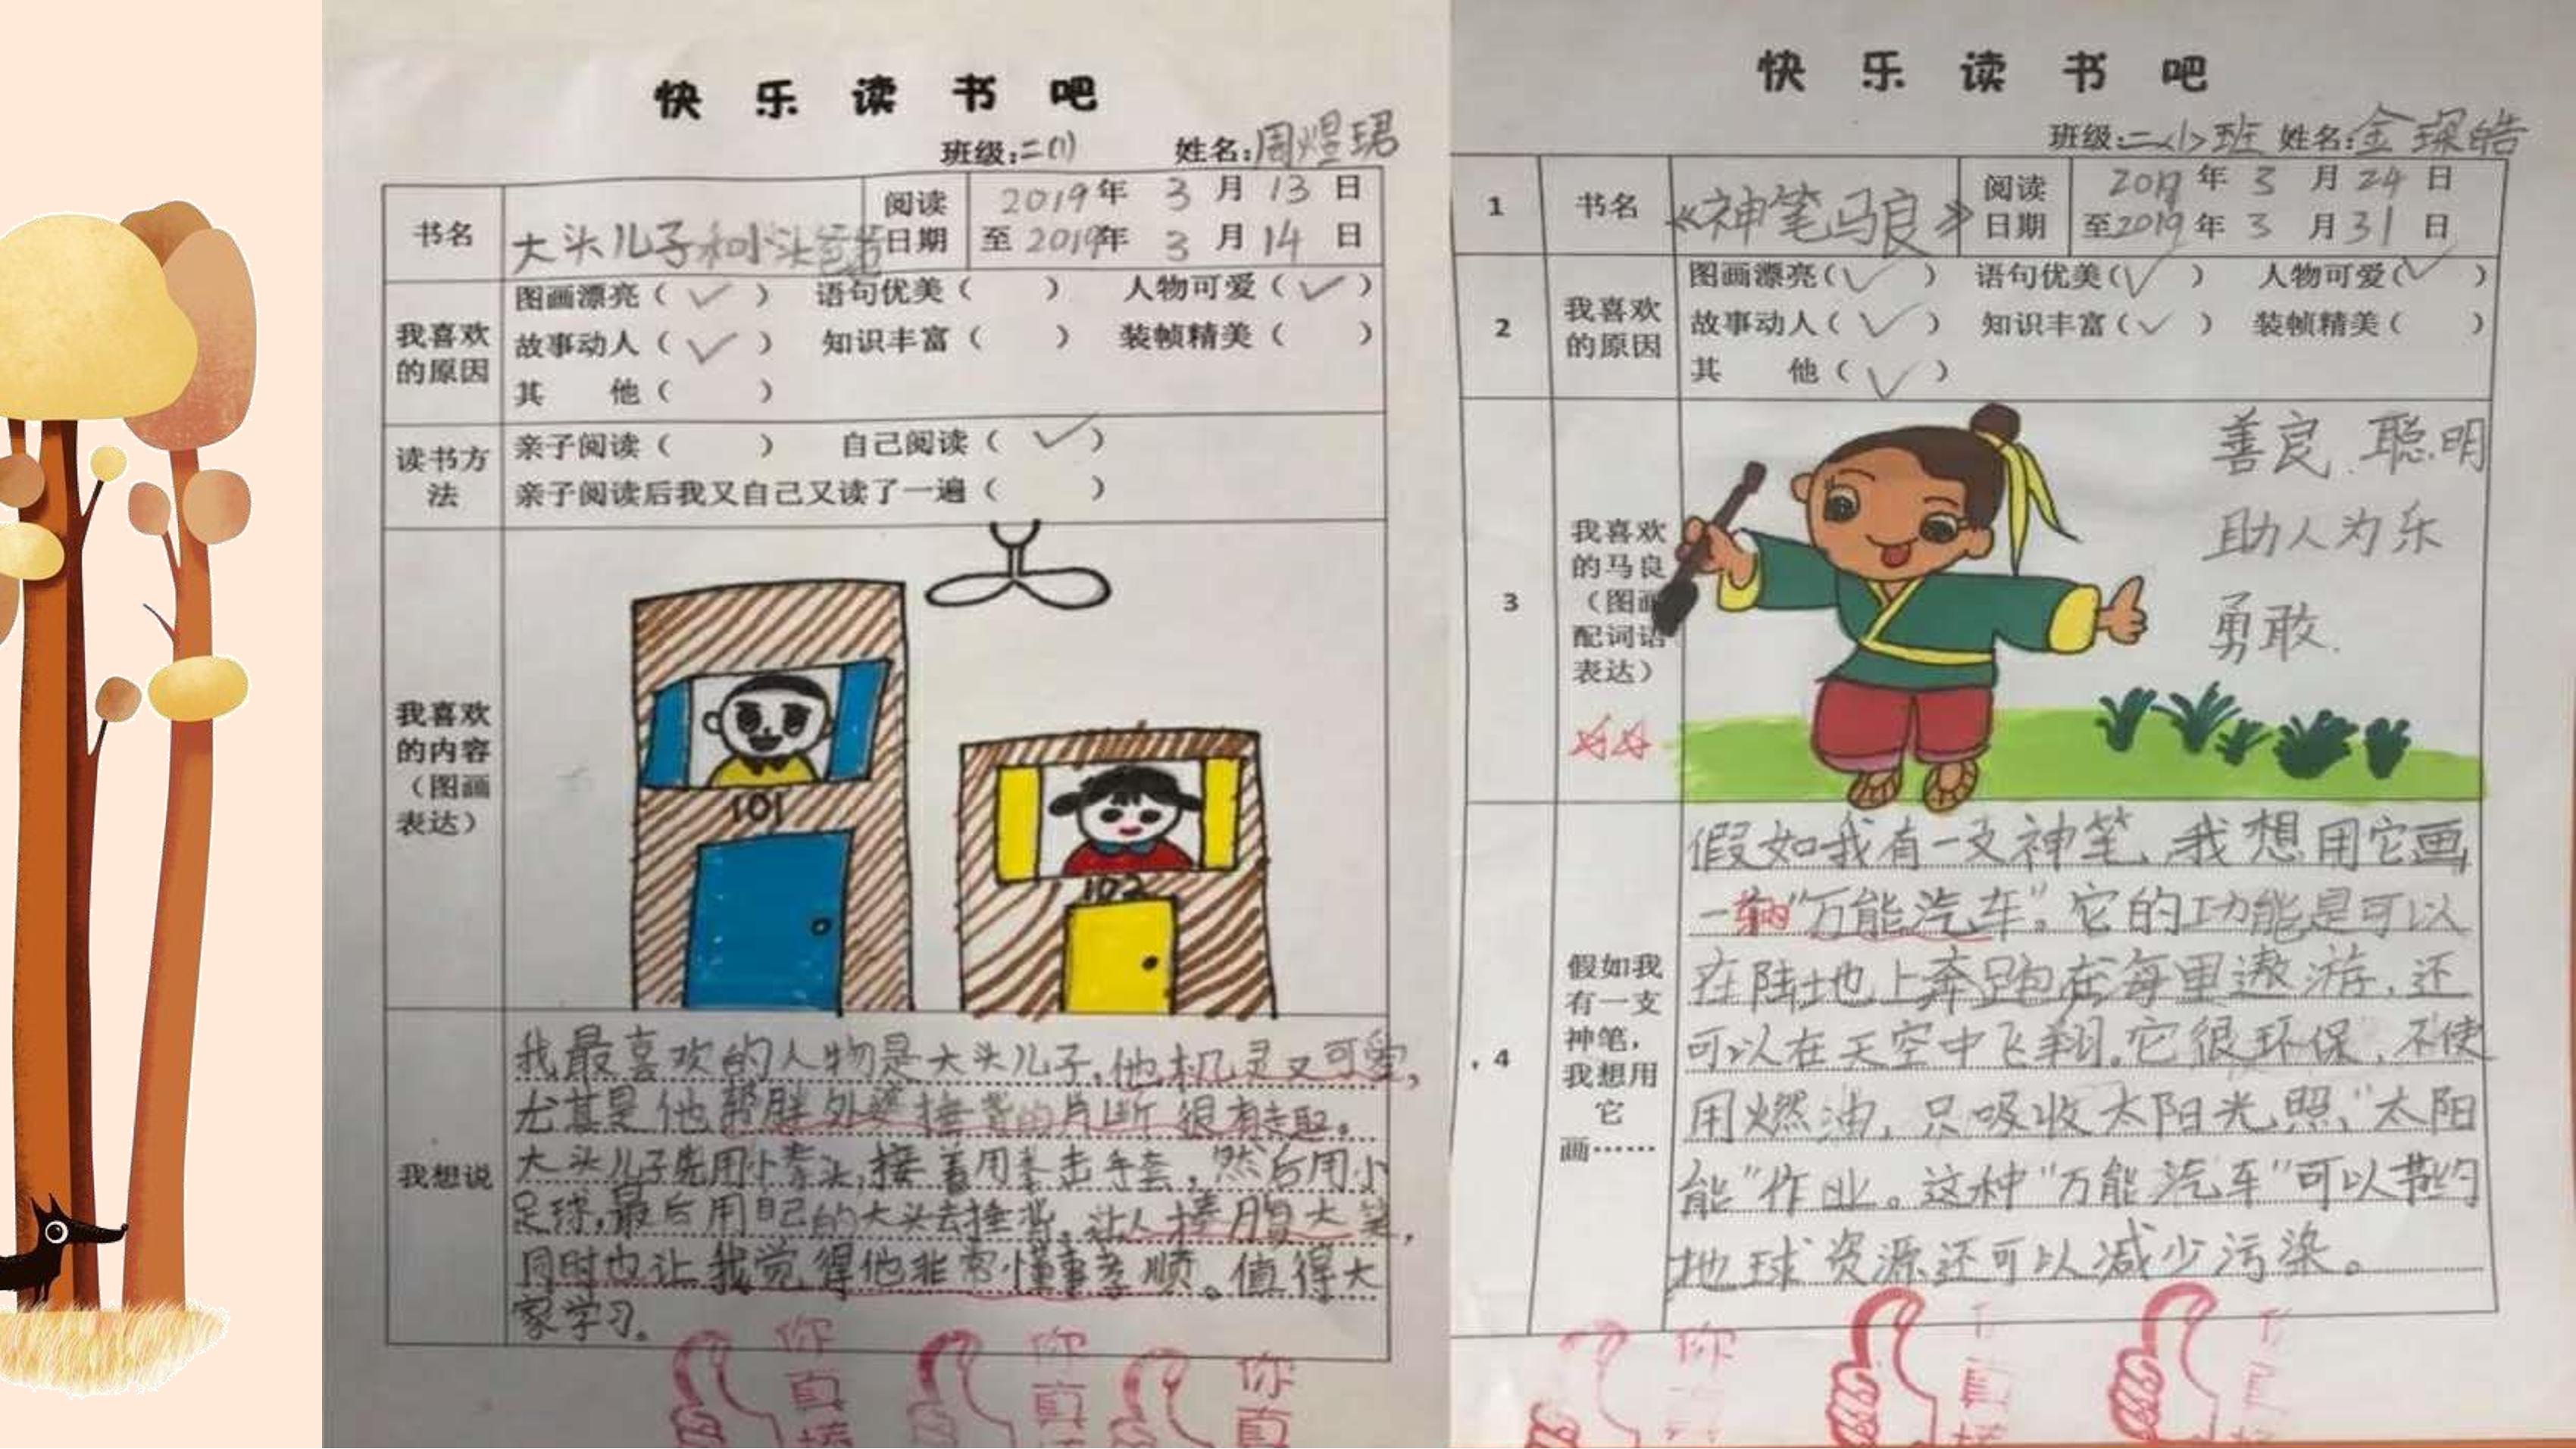 快乐读书吧
班级:二(1) 姓名:周煜珺
书名
大头儿子和小头爸爸
阅读
日期
2019年 3 月 13 日
至 2019年 3 月 14 日
我喜欢
的原因
图画漂亮( ✓ ) 语句优美( ) 人物可爱( ✓ )
故事动人( ✓ ) 知识丰富( ) 装帧精美( )
其 他( )
读书方
法
亲子阅读( ) 自己阅读( ✓ )
亲子阅读后我又自己又读了一遍( )
我喜欢
的内容
(图画
表达)
101
102
我想说
我最喜欢的人物是大头儿子,他机灵又可爱,
尤其是他帮胖外婆捶背的片断很有趣。
大头儿子先用小拳头,接着用拳击手套,然后用小
足球,最后用自己的大头去捶背。让人捧腹大笑,
同时也让我觉得他非常懂事孝顺。值得大
家学习。
你真棒
你真
你真
快乐读书吧
班级:二<1>班 姓名:金琛皓
1
书名
《神笔马良》
阅读
日期
2019年 3 月 24 日
至2019年 3 月 31 日
2
我喜欢
的原因
图画漂亮( ✓ ) 语句优美( ✓ ) 人物可爱( ✓ )
故事动人( ✓ ) 知识丰富( ✓ ) 装帧精美( )
其 他( ✓ )
3
我喜欢
的马良
(图画
配词语
表达)
善良、聪明
助人为乐
勇敢.
4
假如我
有一支
神笔,
我想用
它
画……
假如我有一支神笔,我想用它画
一辆“万能汽车”。它的功能是可以
在陆地上奔跑在海里遨游,还
可以在天空中飞翔。它很环保,不使
用燃油,只吸收太阳光照,“太阳
能”作业。这种“万能汽车”可以节约
地球资源还可以减少污染。
你
真